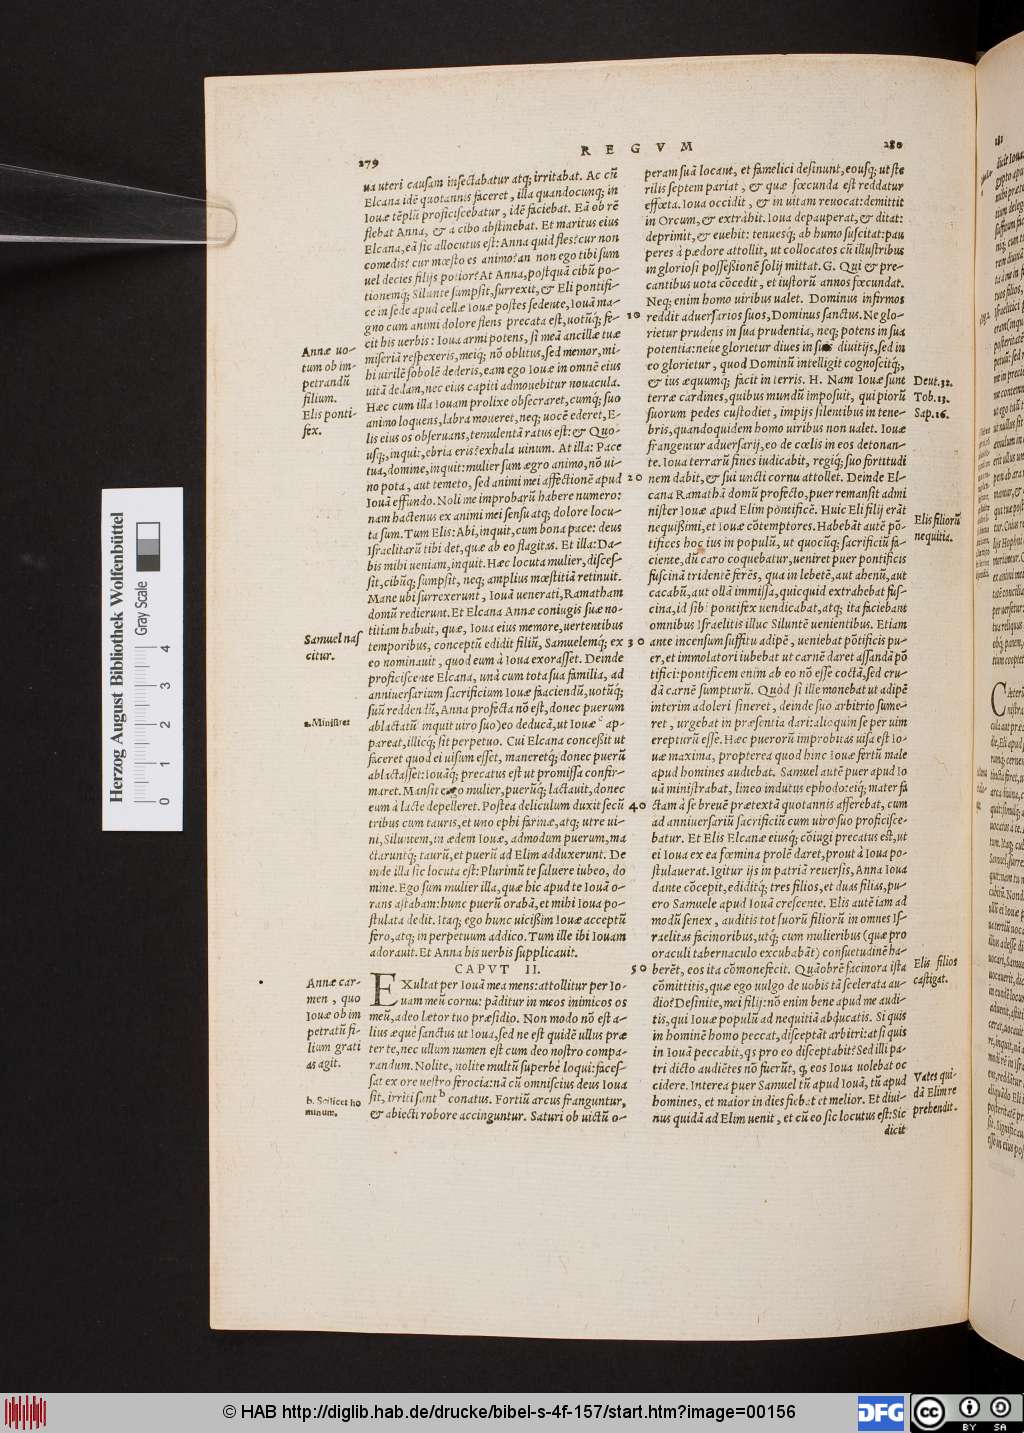 279
REGVM
280
ua uteri causam insectabatur atq; irritabat. Ac cũ
Elcana idẽ quotannis faceret, illa quandocunq; in
Iouæ tẽplũ proficisceba­tur, idẽ faciebat. Eã ob rẽ
flebat Anna, & a cibo abstinebat. Et maritus eius
Elcana, eã sic allocutus est: Anna quid fles? cur non
comedis? cur mœsto es animo? an non ego tibi sum
uel decies filijs potior? At Anna, postquã cibũ po-
tionemq; Silunte sumpsit, surrexit, & Eli pontifi-
ce in sede apud cellæ Iouæ postes sedente, Iouã ma-
gno cum animi dolore flens precata est, uotũq; fe-
cit his uerbis: Ioua armipotens, si meã ancillæ tuæ
miseriã respexeris, meiq; nõ oblitus, sed memor, mi-
hi uirilẽ sobolẽ dederis, eam ego Iouæ in omnẽ eius
uitã dedam, nec eius capiti admouebitur nouacula.
Hæc cum illa Iouam prolixe obsecraret, cumq; suo
animo loquens, labra moueret, neq; uocẽ ederet, E-
lis eius os obseruans, temulentã ratus est: & Quo-
usq;, inqui:, ebria eris? exhala uinum. At illa: Pace
tua, domine, inquit: mulier sum ægro animo, nõ ui-
no pota, aut temeto, sed animi mei affectionẽ apud
Iouã effundo. Noli me improbarũ habere numero:
nam hactenus ex animi mei sensu atq; dolore locu-
ta sum. Tum Elis: Abi, inquit, cum bona pace: deus
Israelitarũ tibi det, quæ ab eo flagitas. Et illa: Da-
bis mihi ueniam, inquit. Hæc locuta mulier, disces-
sit, cibũq; sumpsit, neq; amplius mœstitiã retinuit.
Mane ubi surrexerunt, Iouã uenerati, Ramatham
domũ redierunt. Et Elcana Annæ coniugis suæ no-
titiam habuit, quæ, Ioua eius memore, uertentibus
temporibus, conceptũ edidit filiũ, Samuelemq; ex
eo nominauit, quod eum à Ioua exorasset. Deinde
proficiscente Elcana, unà cum tota sua familia, ad
anniuersarium sacrificium Iouæ faaciendũ, uotũq;
suũ reddendũ, Anna profecta nõ est, donec puerum
ablactatũ inquit uiro suo) eo deducã, ut Iouæ a ap-
pareat, illicq; sit perpetuo. Cui Elcana concessit ut
faceret quod ei uisum esset, maneretq; donec puerũ
ablactasset: Iouãq; precatus est ut promissa confir-
maret. Mansit ergo mulier, puerũq; lactauit, donec
eum à lacte depelleret. Postea deliculum duxit secũ
tribus cum tauris, et uno ephi farinæ, atq; utre ui-
ni, Siluntem, in ædem Iouæ, admodum puerum, ma
ctaruntq; taurũ, et puerũ ad Elim adduxerunt. De
inde illa sic locuta est: Plurimũ te saluere iubeo, do
mine. Ego sum mulier illa, quæ hic apud te Iouã o-
rans astabam: hunc puerũ orabã, et mihi Ioua po-
stulata dedit. Itaq; ego hunc uicißim Iouæ acceptũ
fero, atq; in perpetuum addico. Tum ille ibi Iouam
adorauit. Et Anna his uerbis supplicauit.
CAPVT II.
EXultat per Iouã mea mens: attollitur per Io-
uam meũ cornu: pãditur in meos inimicos os
meũ, adeo lætor tuo præsidio. Non modo nõ est a-
lius æquè sanctus ut Ioua, sed ne est quidẽ ullus præ
ter te, nec ullum numen est cum deo nostro compa-
randum. Nolite, nolite multũ superbè loqui: faces-
sat ex ore uestro ferocia: nã cũ omniscius deus Ioua
sit, irriti sunt b conatus. Fortiũ arcus franguntur,
& abiecti robore accinguntur. Saturi ob uictũ o-
Annæ uo-
tum ob im-
petrandũ
filium.
Elis ponti-
fex.
Samuel nas
citur.
a. Ministret
Annæ car-
men, quo
Iouæ ob im
petratũ fi-
lium grati
as agit.
b. Scilicet ho
minum.
10
20
30
40
50
peram suã locant, et famelici desinunt, eousq; ut ste
rilis septem pariat, & quæ fœcunda est reddatur
effœta. Ioua occidit, & in uitam reuocat: demittit
in Orcum, & extrahit. Ioua depauperat, & ditat:
deprimit, & euehit: tenuesq; ab humo suscitat: pau
peres à pædore attollit, ut collocatos cũ illustribus
in gloriosi posseßionẽ solij mittat. G. Qui & pre-
cantibus uota cõcedit, et iustorũ annos fœcundat.
Neq; enim homo uiribus ualet. Dominus infirmos
reddit aduersarios suos, Dominus sanctus. Ne glo-
rietur prudens in sua prudentia, neq; potens in sua
potentia: neue glorietur diues in suis diuitijs, sed in
eo glorietur, quod Dominũ intelligit cognoscitq;,
& ius æquumq; facit in terris. H. Nam Iouæ sunt
terræ cardines, quibus mundũ imposuit, qui piorũ
suorum pedes custodiet, impijs silentibus in tene-
bris, quandoquidem homo uiribus non ualet. Iouæ
frangentur aduersarij, eo de cœlis in eos detonan-
te. Ioua terrarũ fines iudicabit, regiq; suo fortitudi
nem dabit, & sui uncti cornu attollet. Deinde El-
cana Ramathã domũ profecto, puer remansit admi
nister Iouæ apud Elim pontificẽ. Huic Eli filij erãt
nequißimi, et Iouæ cõtemptores. Habebãt autẽ põ-
tifices hoc ius in populũ, ut quocũq; sacrificiũ fa-
ciente, dũ caro coquebatur, ueniret puer pontificis
fuscinã tridentẽ ferẽs, qua in lebetẽ, aut ahenũ, aut
cacabũ, aut ollã immissa, quicquid extrahebat fus-
cina, id sibi pontifex uendicabat, atq; ita faciebant
omnibus Israelitis illuc Siluntẽ uenientibus. Etiam
ante incensum suffitu adipẽ, ueniebat põtificis pu-
er, et immolatori iubebat ut carnẽ daret assandã põ
tifici: pontificem enim ab eo nõ esse coctã, sed cru-
dã carnẽ sumpturũ. Quòd si ille monebat ut adipẽ
interim adoleri sineret, deinde suo arbitrio sume-
ret, urgebat in præsentia dari: alioquin se per uim
erepturũ esse. Hæc puerorũ improbitas uisa est Io-
uæ maxima, propterea quod hinc Iouæ fertũ male
apud homines audiebat. Samuel autẽ puer apud Io
uã ministrabat, lineo indutus ephodo: eiq; mater fa
ctam à se breuẽ prætextã quotannis afferebat, cum
ad anniuersariũ sacrificiũ cum uiro suo proficisce-
batur. Et Elis Elcanæ eiusq; cõiugi precatus est, ut
ei Ioua ex ea fœmina prolẽ daret, prout à Ioua po-
stulauerat. Igitur ijs in patriã reuersis, Anna Ioua
dante cõcepit, ediditq; tres filios, et duas filias, pu-
ero Samuele apud Iouã crescente. Elis autẽ iam ad
modũ senex, auditis tot suorũ filiorũ in omnes Is-
raelitas facinoribus, utq; cum mulieribus (quæ pro
oraculi tabernaculo excubabãt) consuetudinẽ ha-
berẽt, eos ita cõmonefecit. Quãobrẽ facinora ista
cõmittitis, quæ ego uulgo de uobis tã scelerata au-
dio? Desinite, mei filij: nõ enim bene apud me audi-
tis, qui Iouæ populũ ad nequitiã abducatis. Si quis
in hominẽ homo peccat, disceptãt arbitri: at si quis
in Iouã peccabit, qs pro eo disceptabit? Sed illi pa-
tri dicto audiẽtes nõ fuerũt, q, eos Ioua uolebat oc
cidere. Interea puer Samuel tũ apud Iouã, tũ apud
homines, et maior in dies fiebat et melior. Et diui-
nus quidã ad Elim uenit, et cũ eo sic locutus est: Sic
dicit
Deut.32.
Tob.13.
Sap.16.
Elis filiorũ
nequitia.
Elis filios
castigat.
Vates qui-
dã Elim re
prehendit.
Herzog August Bibliothek Wolfenbüttel
Gray Scale
0 1 2 3 4
© HAB http://diglib.hab.de/drucke/bibel-s-4f-157/start.htm?image=00156
DFG
cc
BY SA